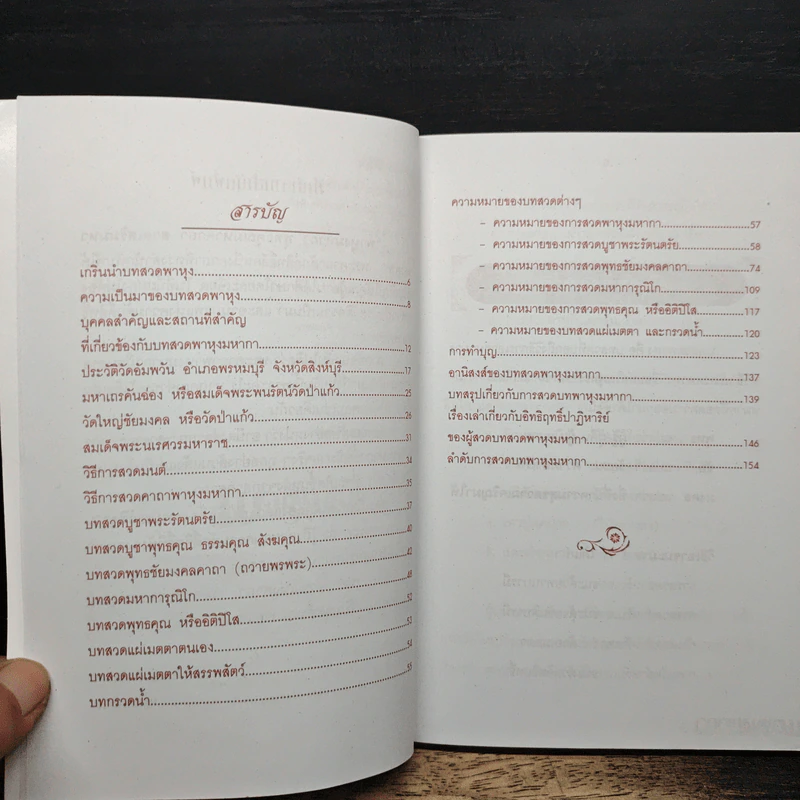 สารบัญ
เกริ่นนำบทสวดพาหุง........................................6
ความเป็นมาของบทสวดพาหุง........................................8
บุคคลสำคัญและสถานที่สำคัญ
ที่เกี่ยวข้องกับบทสวดพาหุงมหากา........................................12
ประวัติวัดอัมพวัน อำเภอพรหมบุรี จังหวัดสิงห์บุรี........................................17
มหาเถรคันฉ่อง หรือสมเด็จพระพนรัตน์วัดป่าแก้ว........................................25
วัดใหญ่ชัยมงคล หรือวัดป่าแก้ว........................................26
สมเด็จพระนเรศวรมหาราช........................................31
วิธีการสวดมนต์........................................34
วิธีการสวดคาถาพาหุงมหากา........................................35
บทสวดบูชาพระรัตนตรัย........................................37
บทสวดบูชาพุทธคุณ ธรรมคุณ สังฆคุณ........................................40
บทสวดพุทธชัยมงคลคาถา (ถวายพรพระ)........................................42
บทสวดมหาการุณิโก........................................
บทสวดพุทธคุณ หรืออิติปิโส........................................52
บทสวดแผ่เมตตาตนเอง........................................53
บทสวดแผ่เมตตาให้สรรพสัตว์........................................54
บทกรวดน้ำ........................................55
ความหมายของบทสวดต่างๆ
- ความหมายของการสวดพาหุงมหากา........................................57
- ความหมายของการสวดบูชาพระรัตนตรัย........................................58
- ความหมายของการสวดพุทธชัยมงคลคาถา........................................74
- ความหมายของการสวดมหาการุณิโก........................................109
- ความหมายของการสวดพุทธคุณ หรืออิติปิโส........................................117
- ความหมายของบทสวดแผ่เมตตา และกรวดน้ำ........................................120
การทำบุญ........................................123
อานิสงส์ของบทสวดพาหุงมหากา........................................137
บทสรุปเกี่ยวกับการสวดบทพาหุงมหากา........................................139
เรื่องเล่าเกี่ยวกับอิทธิฤทธิ์ปาฏิหาริย์
ของผู้สวดบทสวดพาหุงมหากา........................................146
ลำดับการสวดบทพาหุงมหากา........................................154